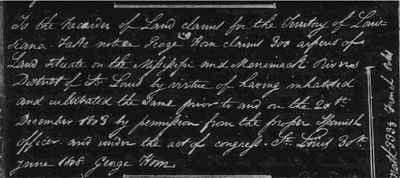 To the Recorder of Land claims for the Territory of Loui-
siana. Take notice George Hom claims 300 arpens of
Land situate on the Missisipi and Merrimack Rivers
District of St. Louis by virtue of having inhabited
and cultivated the same prior to and on the 20th
December 1803 by permission from the proper Spanish
officer and under the act of congress. St. Louis 30th
June 1808 George Hom